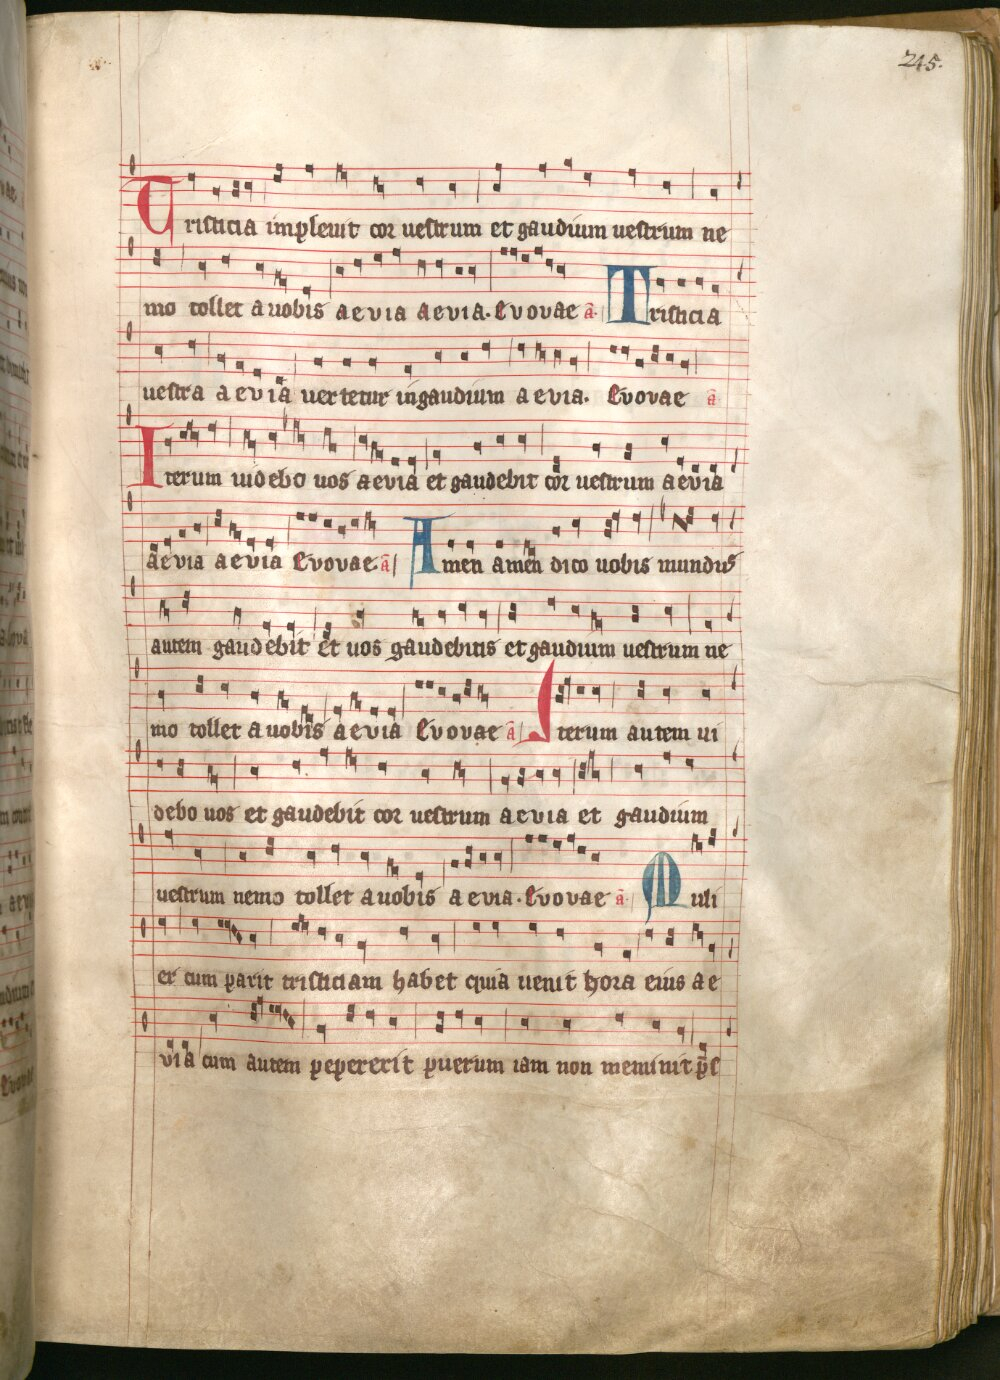 245.
Tristicia impleuit cor uestrum et gaudium uestrum ne
mo tollet a uobis aevia aevia. Evovae ā. Tristicia
uestra aevia uertetur in gaudium aevia. Evovae ā
Iterum uidebo uos aevia et gaudebit cor uestrum aevia
aevia aevia Evovae ā Amen amen dico uobis mundus
autem gaudebit et uos gaudebitis et gaudium uestrum ne
mo tollet a uobis aevia Evovae ā Iterum autem ui
debo uos et gaudebit cor uestrum aevia et gaudium
uestrum nemo tollet a uobis aevia. Evovae ā Muli
er cum parit tristiciam habet quia uenit hora eius ae
via cum autem pepererit puerum iam non meminit p̄s